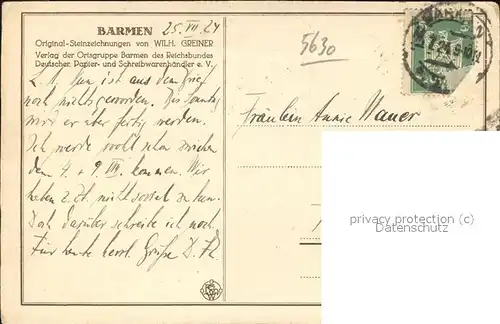 BARMEN 25. VII. 24
Original-Steinzeichnungen von WILH. GREINER
Verlag der Ortsgruppe Barmen des Reichsbundes
Deutscher Papier- und Schreibwarenhändler e. V.
L. A. Nun ist aus dem Brief
noch nichts geworden. Bis Sonntag
wird er aber fertig werden.
Ich werde wohl schon zwischen
dem 4. + 9. VIII. kommen. Wir
haben z. Zt. nicht soviel zu tun.
Doch darüber schreibe ich noch.
Für heute herzl. Grüße D.
5630
Fräulein Annie Wauer
privacy protection (c)
Datenschutz